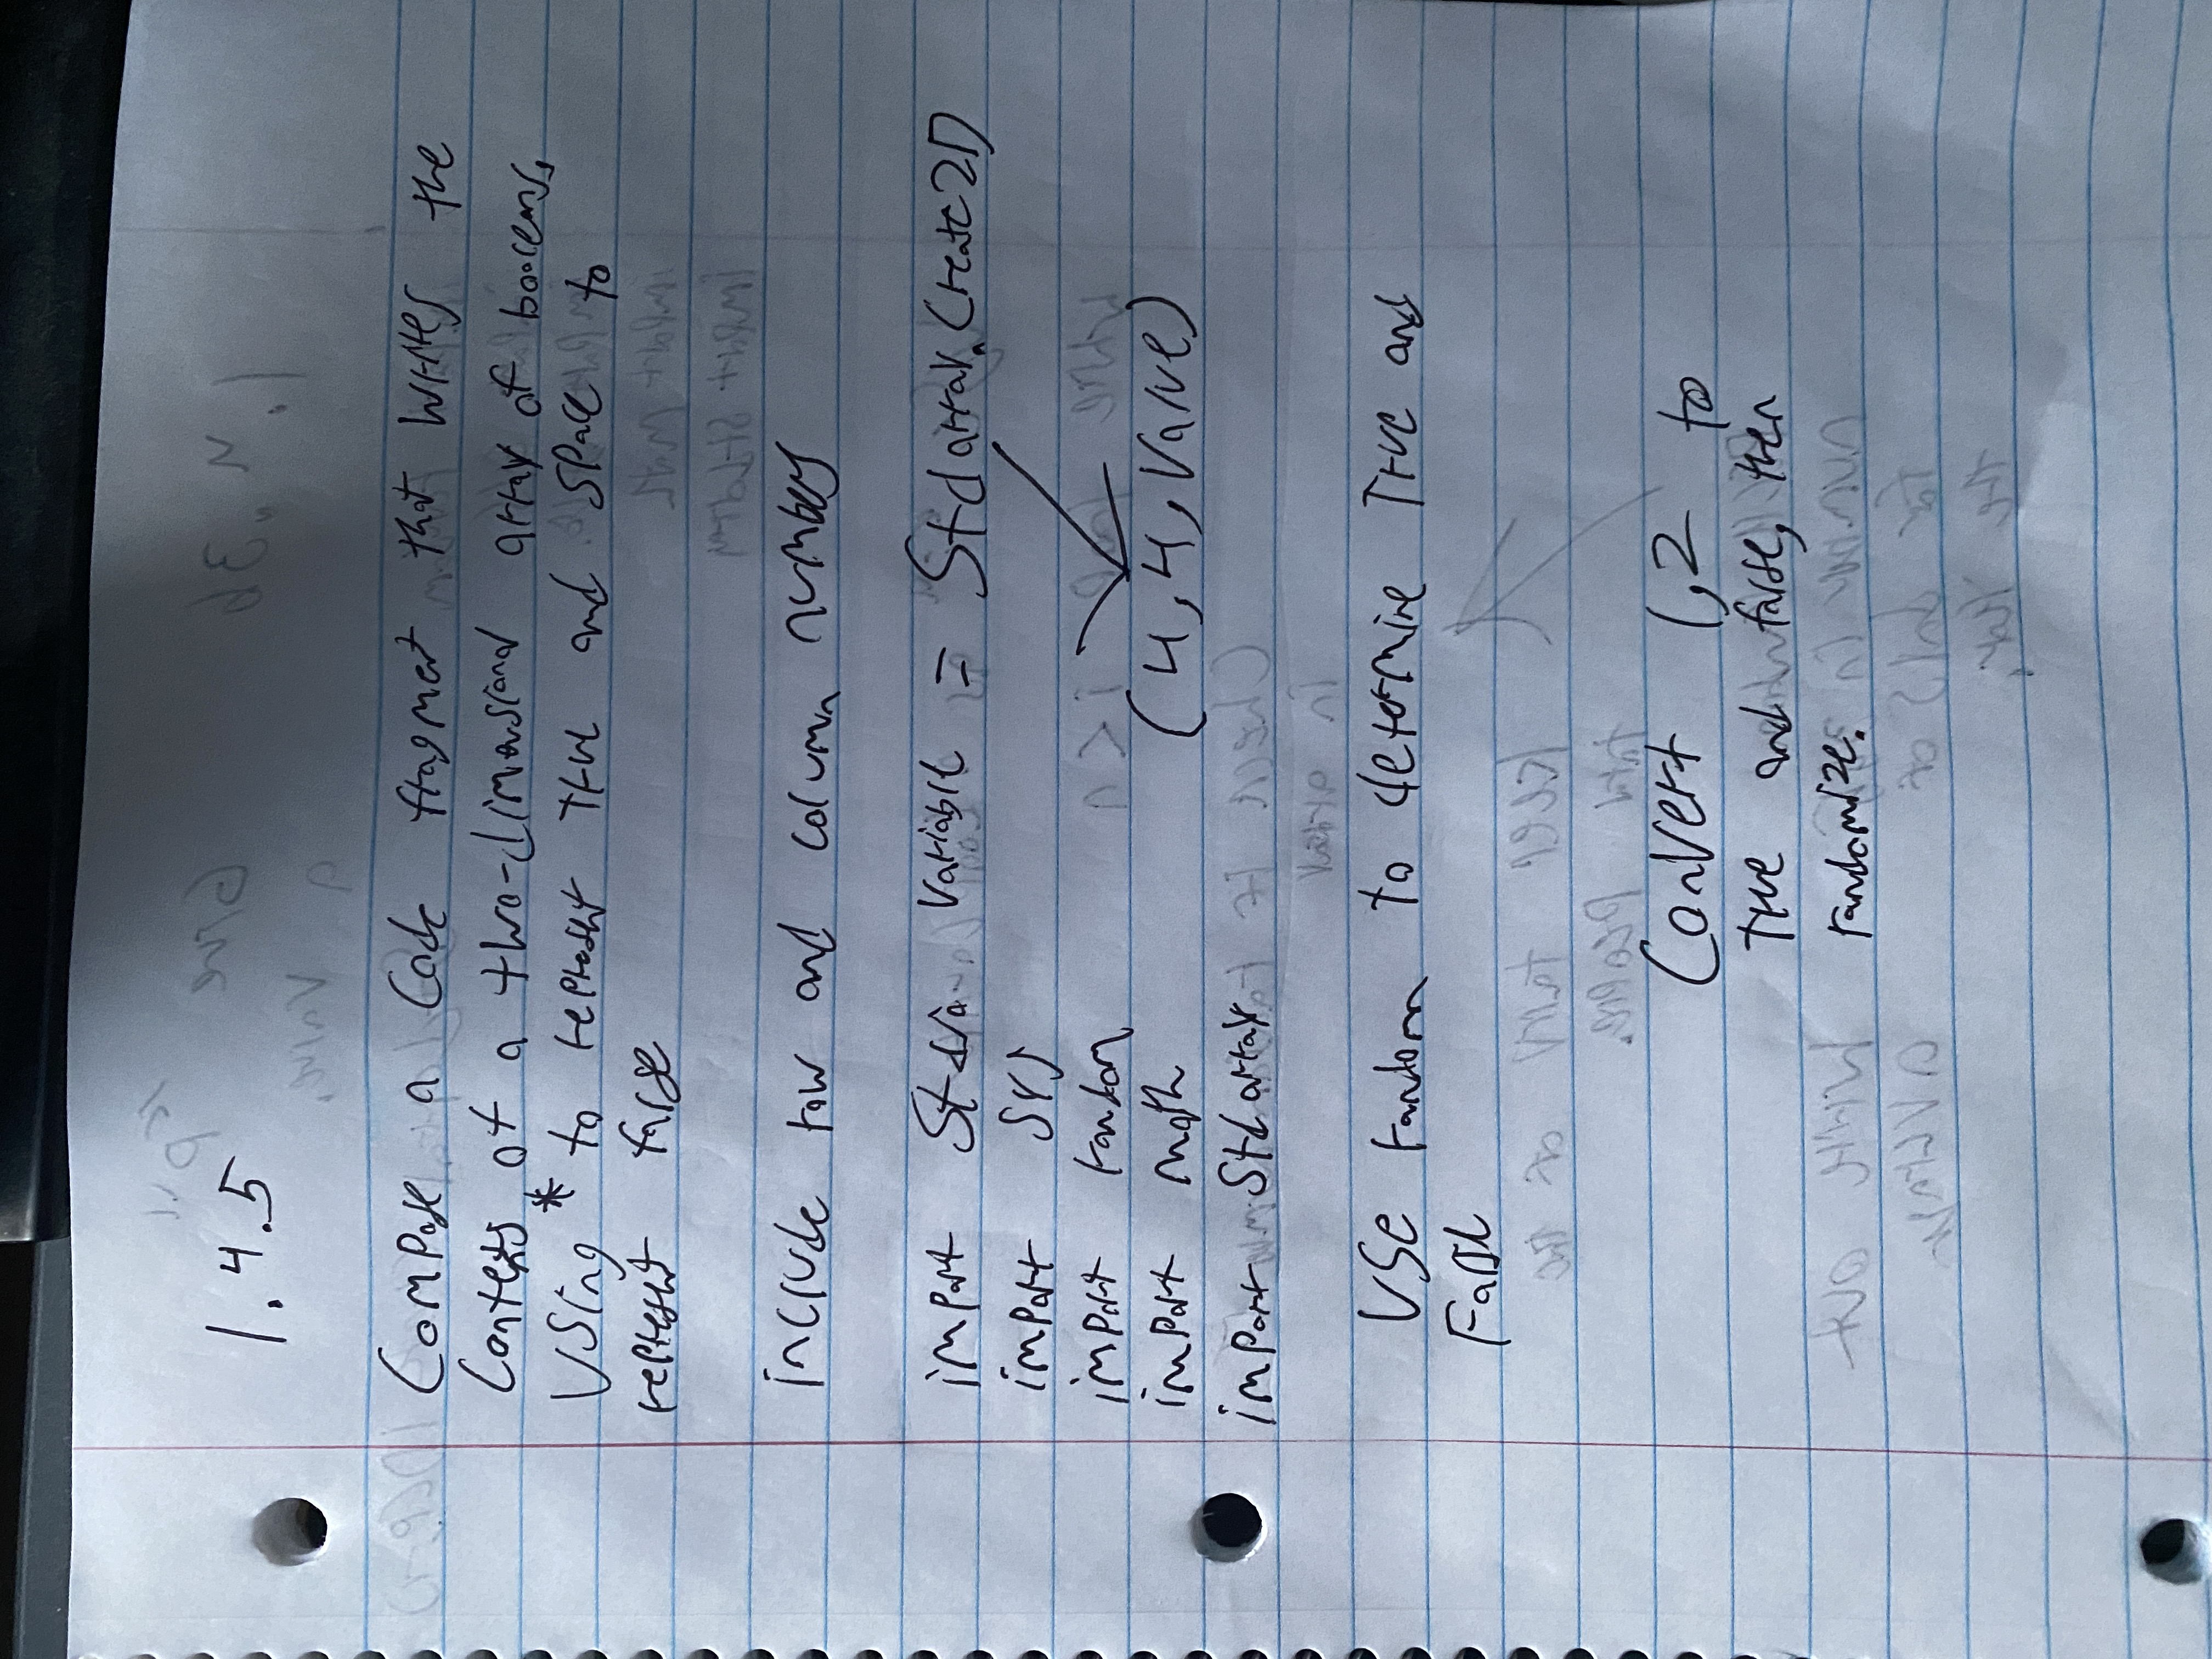 1.4.5
Compose a Code fragment that writes the
Contents of a two-dimensional array of booleans,
Using * to represent True and space to
represent false
include row and column numbers
import Stdio variable = Stdarray.Create2D
import sys
import random
import math (4,4,Value)
import Stdarray
Use random to determine True and
False
Convert 1,2 to
True and false, then
randomize.